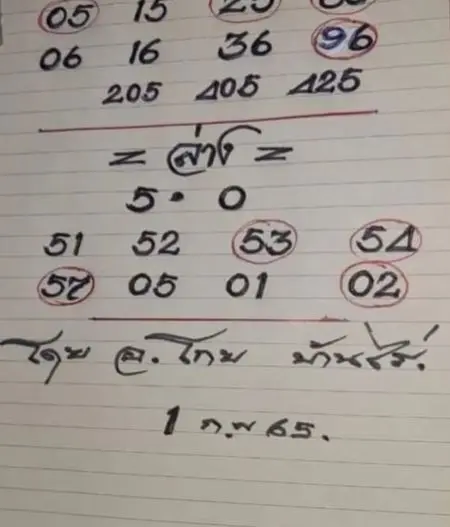 05 15 25
06 16 36 96
205 405 425
= ล่าง =
5 • 0
51 52 53 54
57 05 01 02
โดย อ. โทบ บ้านไร่.
1 ก.พ 65.